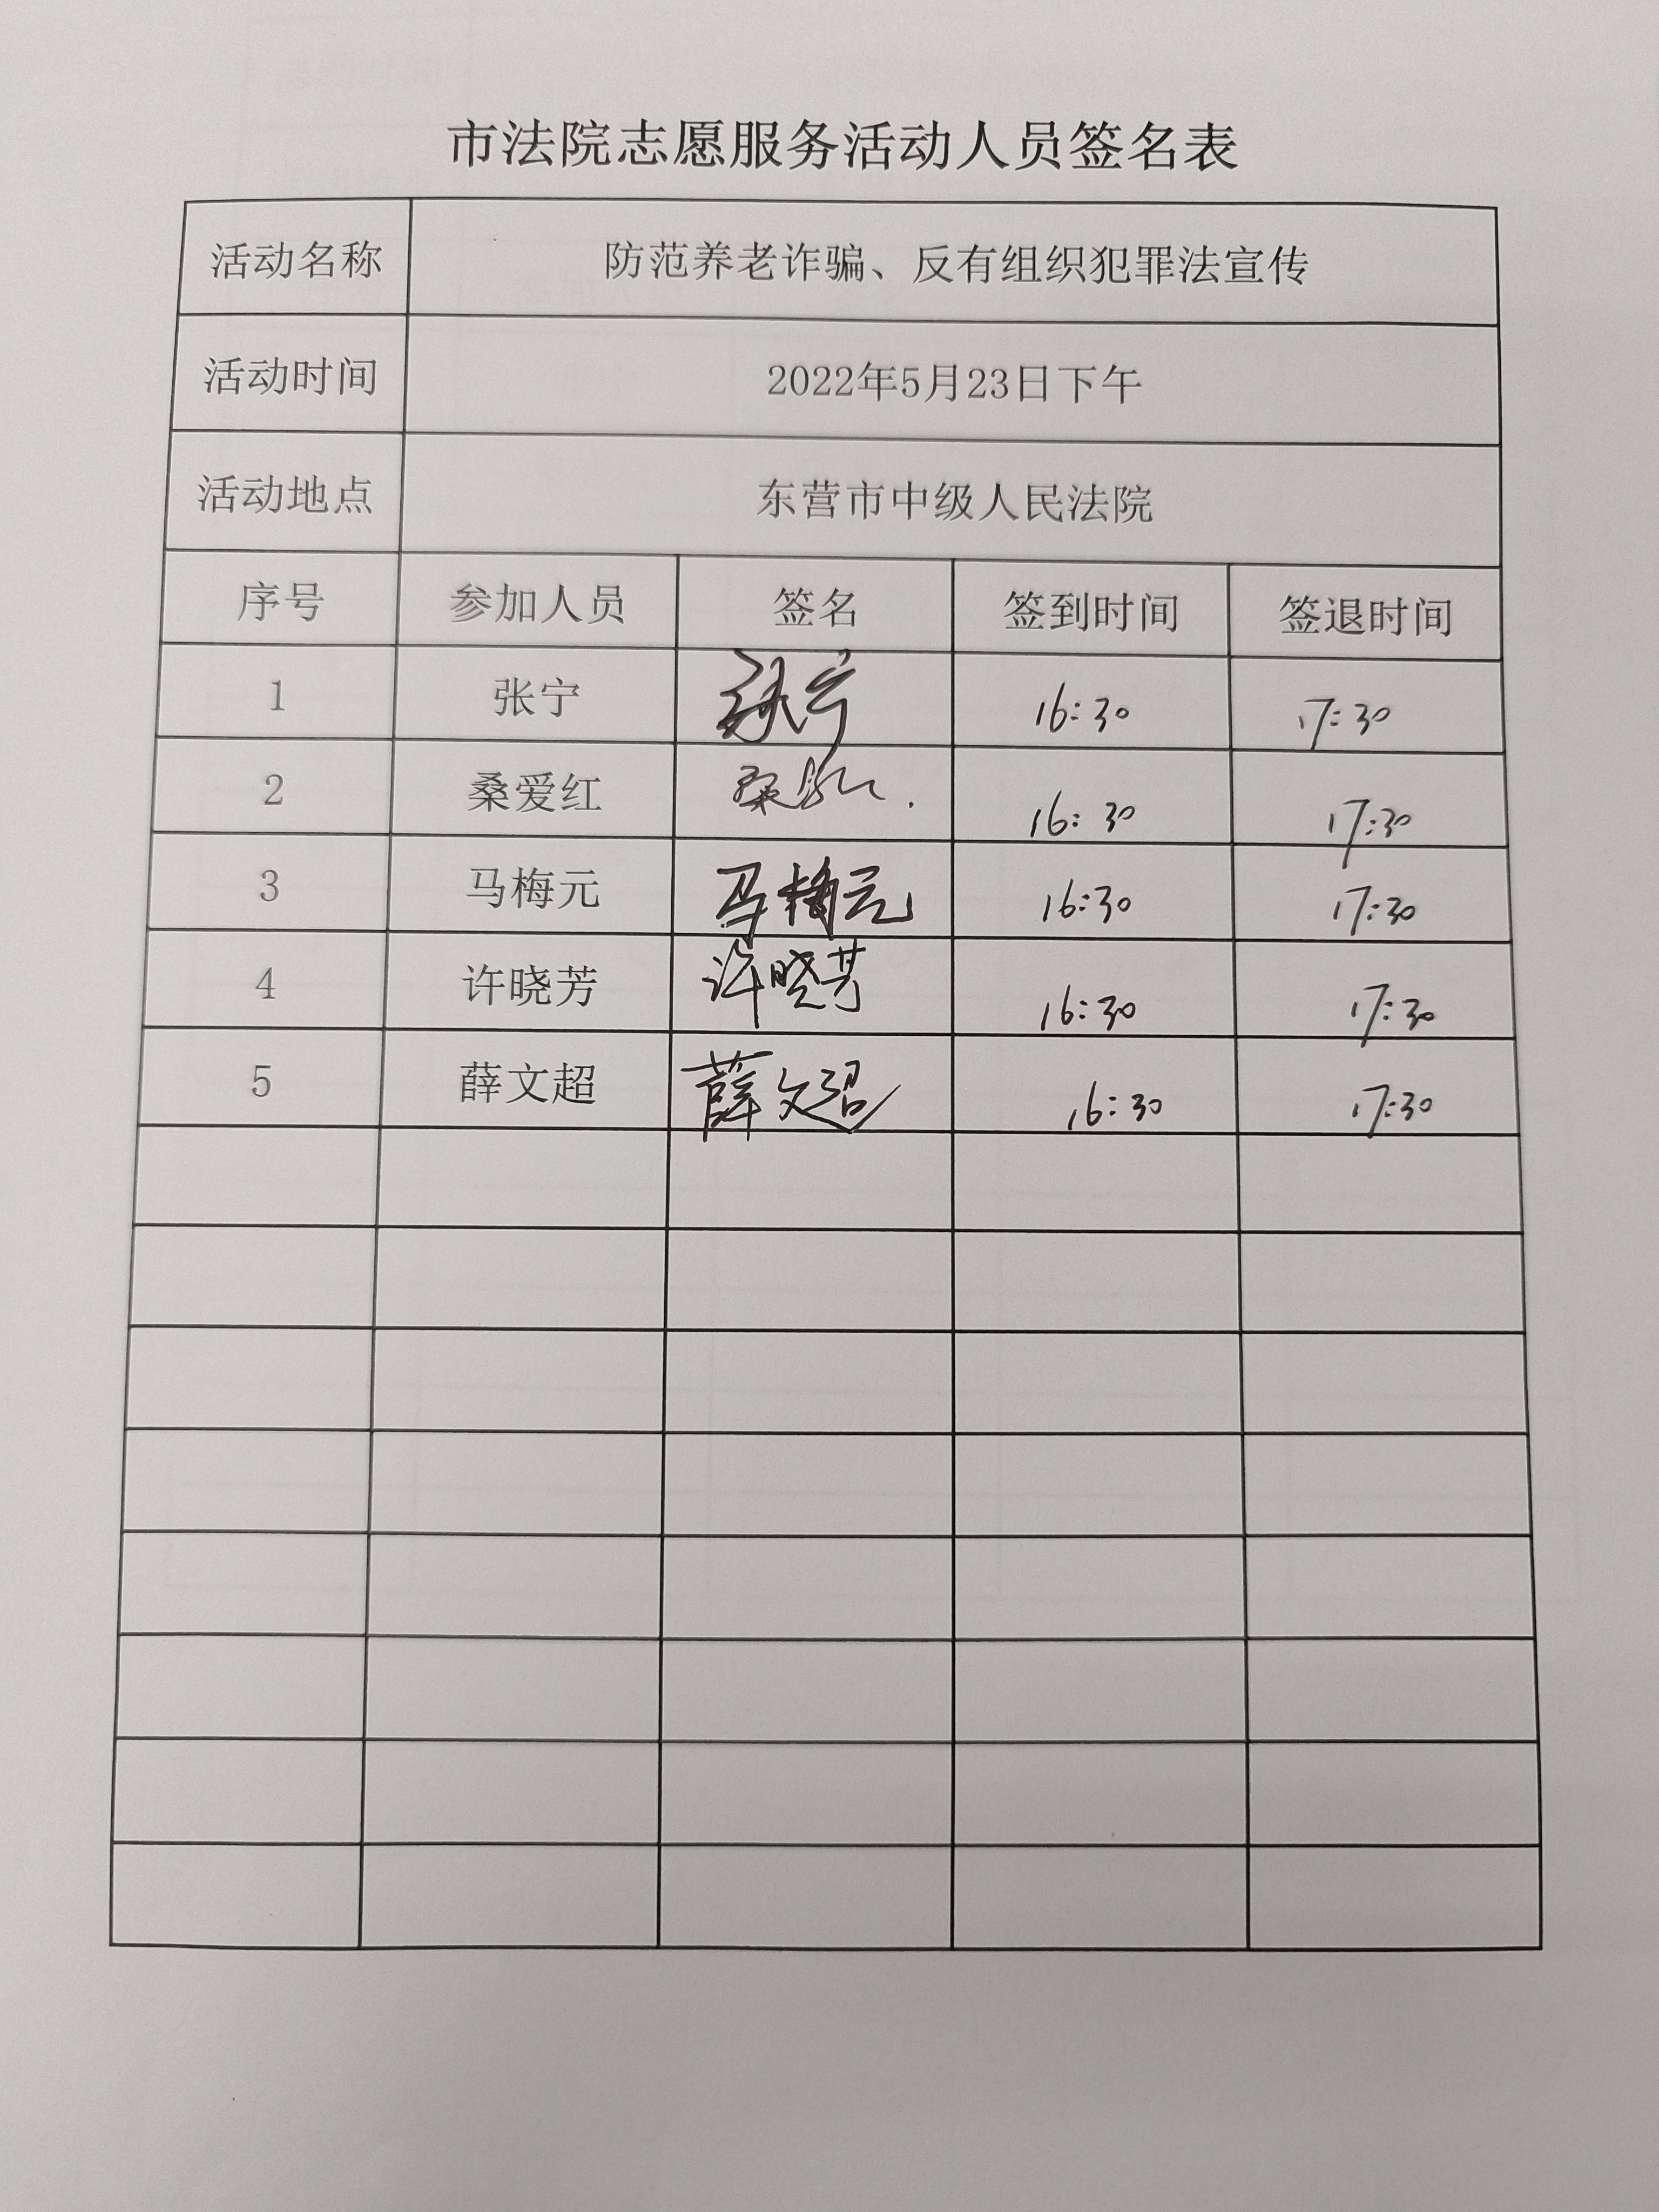 市法院志愿服务活动人员签名表
活动名称 防范养老诈骗、反有组织犯罪法宣传
活动时间 2022年5月23日下午
活动地点 东营市中级人民法院
序号 参加人员 签名 签到时间 签退时间
1 张宁 张宁 16:30 17:30
2 桑爱红 桑爱红 16:30 17:30
3 马梅元 马梅元 16:30 17:30
4 许晓芳 许晓芳 16:30 17:30
5 薛文超 薛文超 16:30 17:30